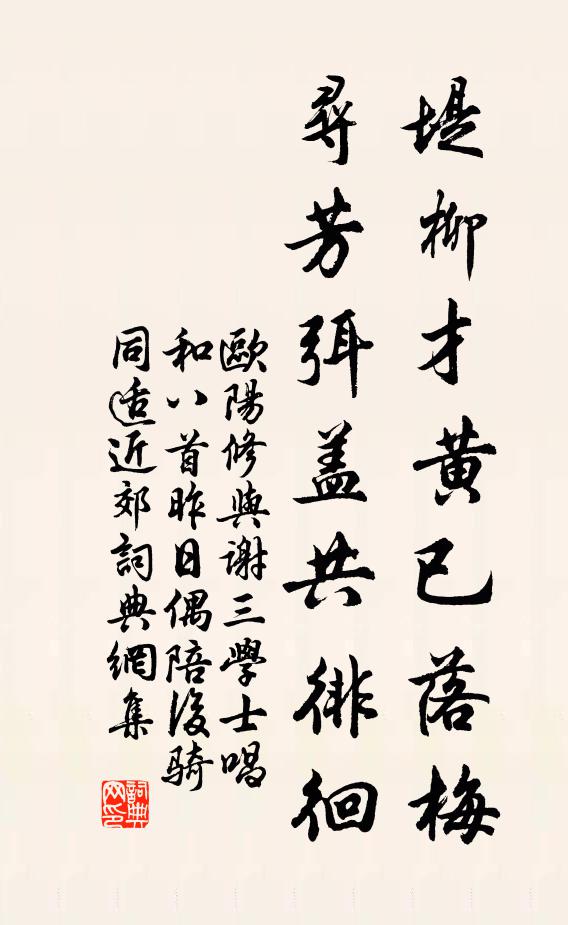 堤柳才黃已落梅
尋芳弭蓋共徘徊
歐陽修與謝三學士唱
和八首昨日偶陪後騎
同适近郊詞典網集
詞典网印